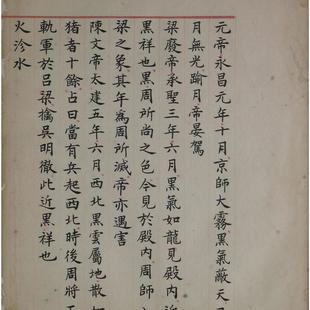 元帝永昌元年十月京師大霧黑氣蔽天
月無光踰月帝晏駕
梁廢帝承聖三年六月黑氣如龍見殿內近
黑祥也黑周所尚之色今見於殿內周師
梁之象其年為周所滅帝亦遇害
陳文帝太建五年六月西北黑雲屬地散如
豬者十餘占曰當有兵起西北時後周將王
軌軍於呂梁擒吳明徹此近黑祥也
火沴水